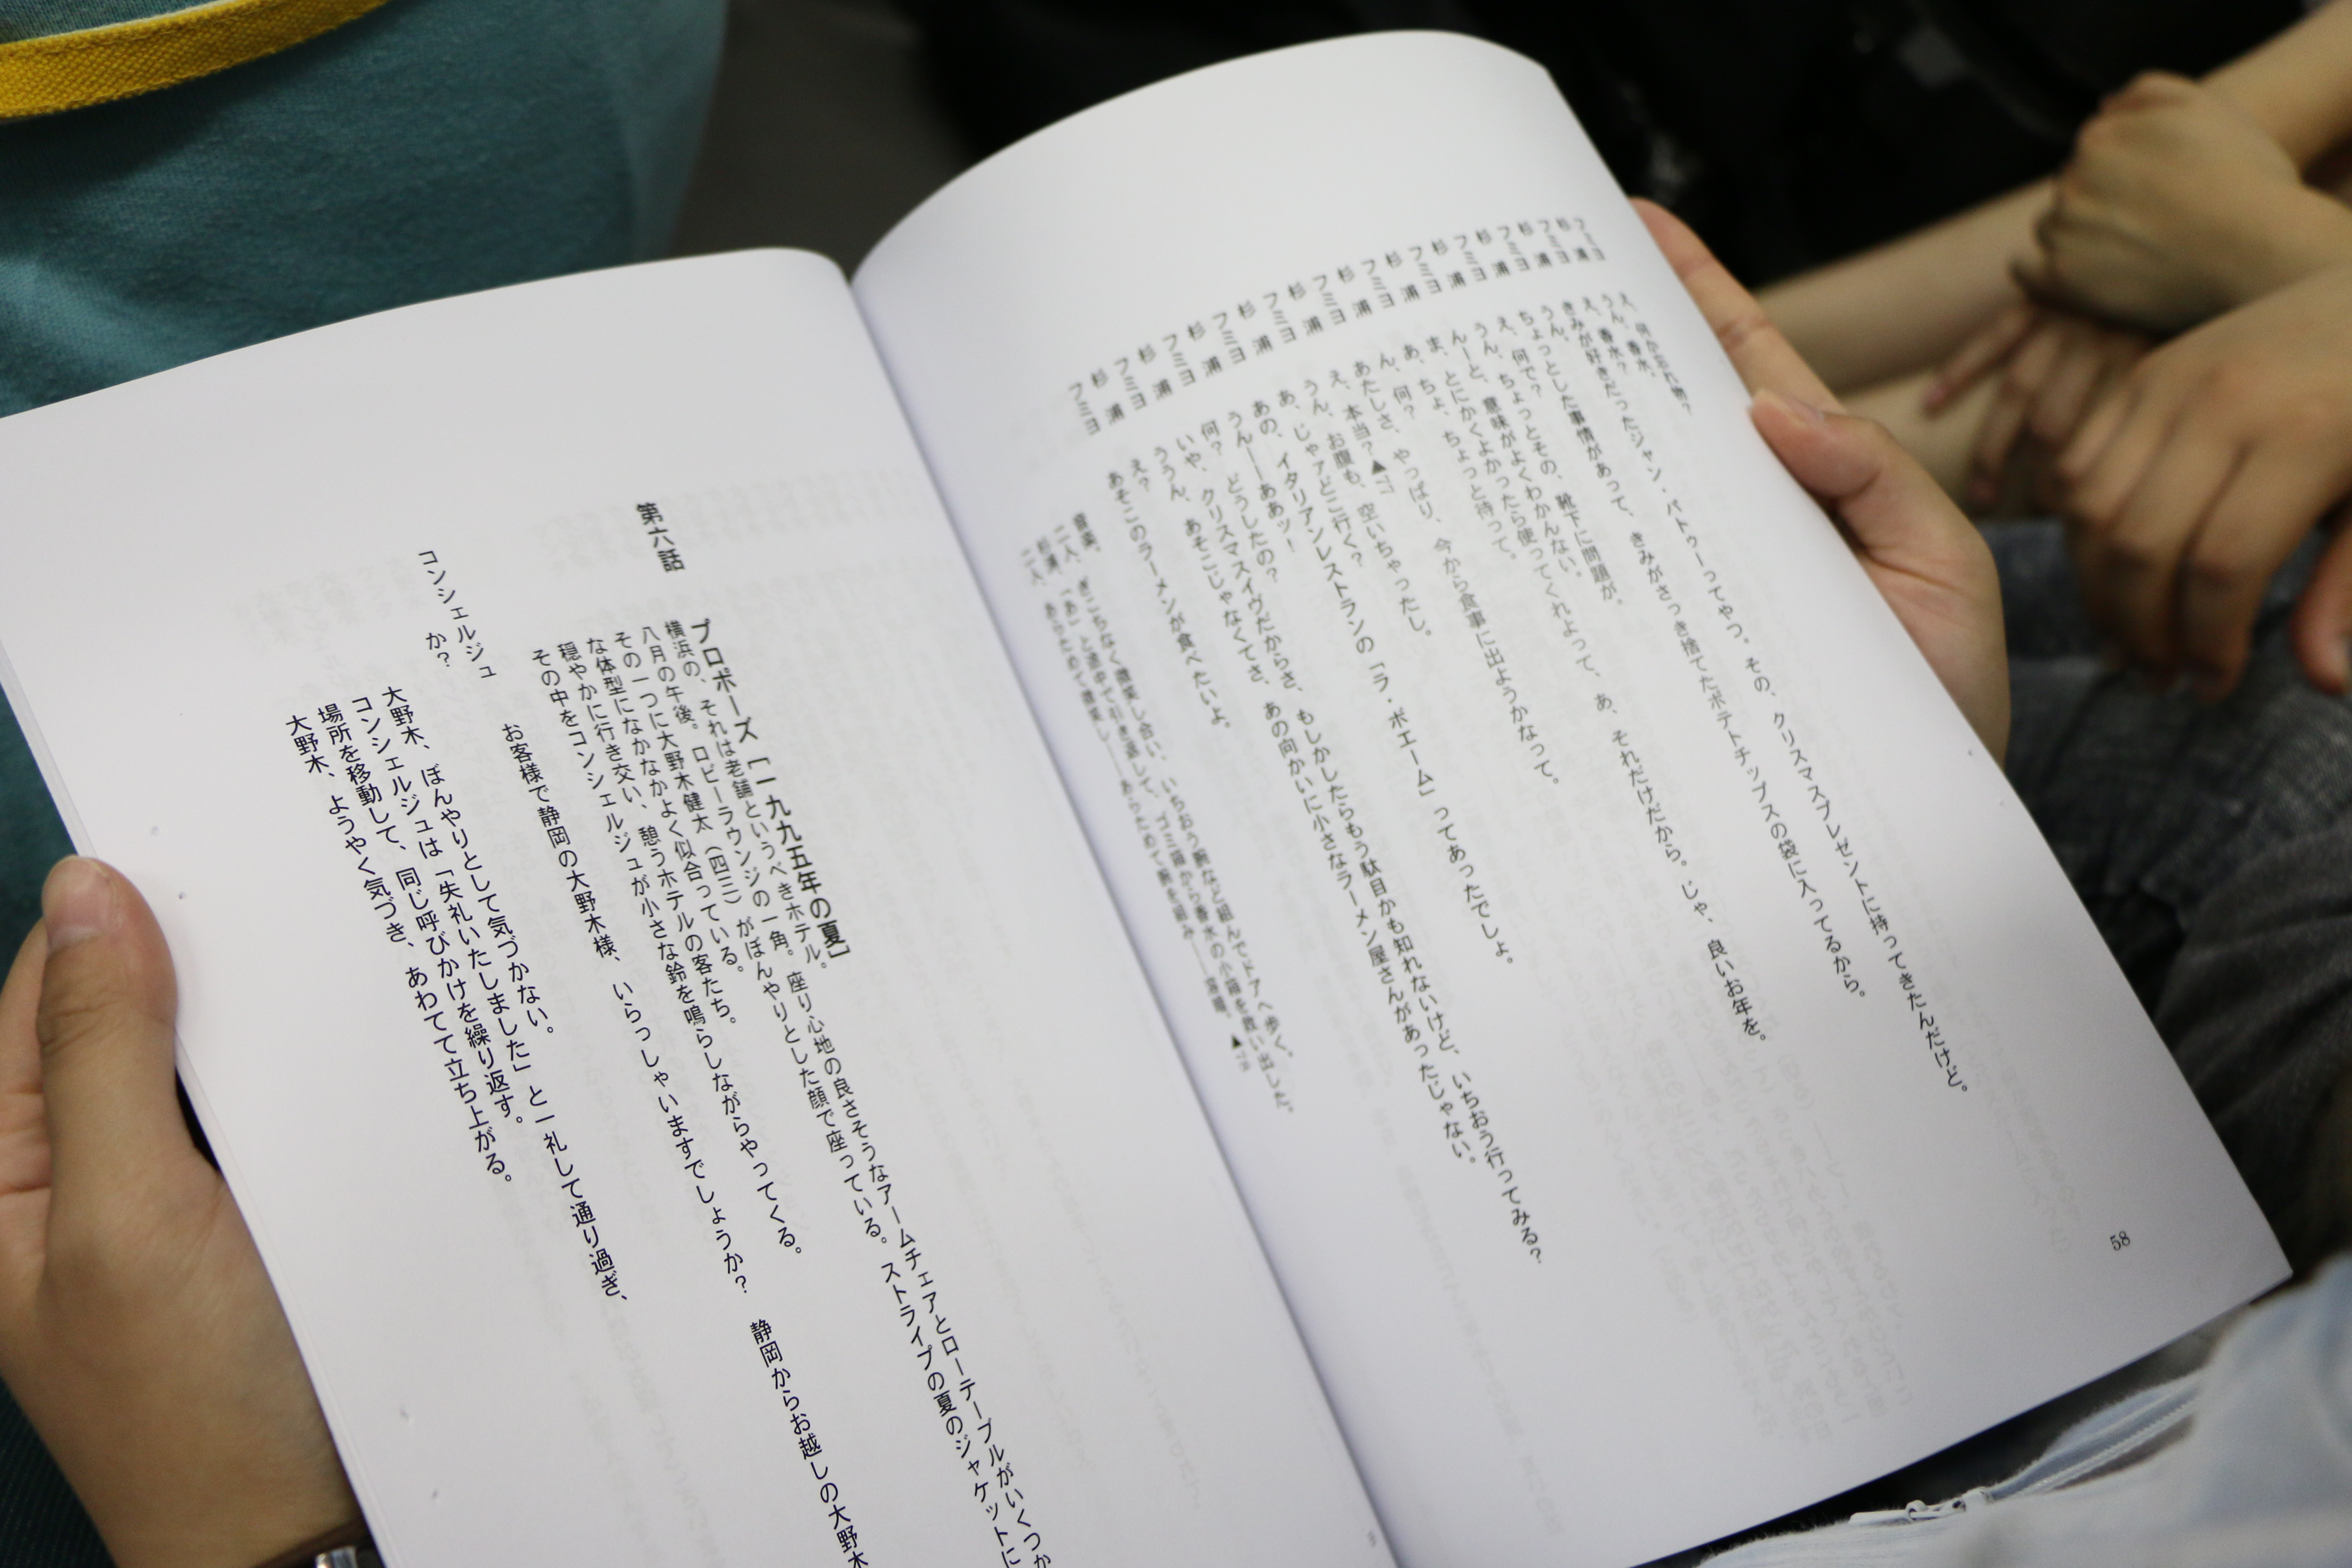 フミヨ え、何か忘れ物?
杉浦 うん、香水。
フミヨ え、香水?
杉浦 きみが好きだったジャン・パトゥーってやつ。その、クリスマスプレゼントに持ってきたんだけど。
フミヨ うん。
杉浦 ちょっとした事情があって、きみがさっき捨てたポテトチップスの袋に入ってるから。
フミヨ え、何で?
杉浦 うん、ちょっとその、靴下に問題が。
フミヨ んーと、意味がよくわかんない。
杉浦 ま、とにかくよかったら使ってくれよって、あ、それだけだから。じゃ、良いお年を。
フミヨ あ、ちょ、ちょっと待って。
杉浦 ん、何?
フミヨ あたしさ、やっぱり、今から食事に出ようかなって。
杉浦 え、本当?▲
フミヨ うん、お腹も、空いちゃったし。
杉浦 あ、じゃァどこ行く?
フミヨ あの、イタリアンレストランの「ラ・ボエーム」ってあったでしょ。
杉浦 うん——ああッ!
フミヨ 何? どうしたの?
杉浦 いや、クリスマスイヴだからさ、もしかしたらもう駄目かも知れないけど、いちおう行ってみる?
フミヨ ううん、あそこじゃなくてさ、あの向かいに小さなラーメン屋さんがあったじゃない。
杉浦 え?
フミヨ あそこのラーメンが食べたいよ。
音楽。
二人、ぎこちなく微笑し合い、いちおう腕など組んでドアへ歩く。
杉浦、「あ」と途中で引き返して、ゴミ箱から香水の小箱を救い出した。
二人、あらためて微笑し——あらためて腕を組み——溶暗。▲
58
第六話 プロポーズ [一九九五年の夏]
横浜の、それは老舗というべきホテル。
八月の午後。ロビーラウンジの一角。座り心地の良さそうなアームチェアとローテーブルがいくつか
その一つに大野木健太(四三)がぼんやりとした顔で座っている。ストライプの夏のジャケットに
な体型になかなかよく似合っている。
穏やかに行き交い、憩うホテルの客たち。
その中をコンシェルジュが小さな鈴を鳴らしながらやってくる。
コンシェルジュ お客様で静岡の大野木様、いらっしゃいますでしょうか? 静岡からお越しの大野木
か?
大野木、ぼんやりとして気づかない。
コンシェルジュは「失礼いたしました」と一礼して通り過ぎ、
場所を移動して、同じ呼びかけを繰り返す。
大野木、ようやく気づき、あわてて立ち上がる。